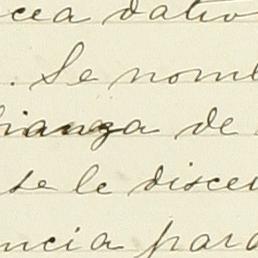 cea dativ
. Se nomb
fianza de
se le discer
ncia para